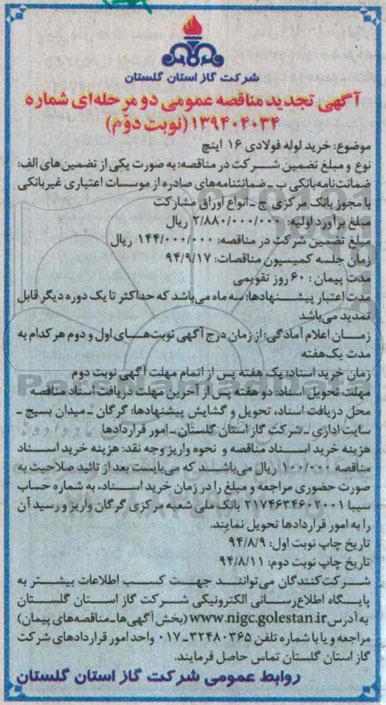 شرکت گاز استان گلستان
آگهی تجدید مناقصه عمومی دو مرحله‌ای شماره
۱۳۹۴۰۴۰۳۴ (نوبت دوّم)
موضوع: خرید لوله فولادی ۱۶ اینچ
نوع و مبلغ تضمین شرکت در مناقصه: به صورت یکی از تضمین‌های الف:
ضمانت‌نامه بانکی ب - ضمانتنامه‌های صادره از موسسات اعتباری غیربانکی
با مجوز بانک مرکزی ج - انواع اوراق مشارکت
مبلغ برآورد اولیه: ۲/۸۸۰/۰۰۰/۰۰۰ ریال
مبلغ تضمین شرکت در مناقصه: ۱۴۴/۰۰۰/۰۰۰ ریال
زمان جلسه کمیسیون مناقصات: ۹۴/۹/۱۷
مدت پیمان: ۶۰ روز تقویمی
مدت اعتبار پیشنهادها: سه ماه می‌باشد که حداکثر تا یک دوره دیگر قابل
تمدید می‌باشد
زمان اعلام آمادگی: از زمان درج آگهی نوبت‌های اول و دوم هر کدام به
مدت یک هفته
زمان خرید اسناد: یک هفته پس از اتمام مهلت آگهی نوبت دوم
مهلت تحویل اسناد: دو هفته پس از آخرین مهلت دریافت اسناد مناقصه
محل دریافت اسناد، تحویل و گشایش پیشنهادها: گرگان - میدان بسیج -
سایت اداری - شرکت گاز استان گلستان - امور قراردادها
هزینه خرید اسناد مناقصه و نحوه واریز وجه نقد: هزینه خرید اسناد
مناقصه ۱۰۰/۰۰۰ ریال می‌باشند که می‌بایست بعد از تائید صلاحیت به
صورت حضوری مراجعه و مبلغ را در زمان خرید اسناد، به شماره حساب
سیبا ۲۱۷۴۶۳۴۶۰۲۰۰۱ بانک ملی شعبه مرکزی گرگان واریز و رسید آن
را به امور قراردادها تحویل نمایند.
تاریخ چاپ نوبت اول: ۹۴/۸/۹
تاریخ چاپ نوبت دوم: ۹۴/۸/۱۱
شرکت‌کنندگان می‌توانند جهت کسب اطلاعات بیشتر به
پایگاه اطلاع‌رسانی الکترونیکی شرکت گاز استان گلستان
به آدرس www.nigc.golestan.ir (بخش آگهی‌ها - مناقصه‌های پیمان)
مراجعه و یا با شماره تلفن ۳۲۴۸۰۳۶۵-۰۱۷ واحد امور قراردادهای شرکت
گاز استان گلستان تماس حاصل فرمایند.
روابط عمومی شرکت گاز استان گلستان